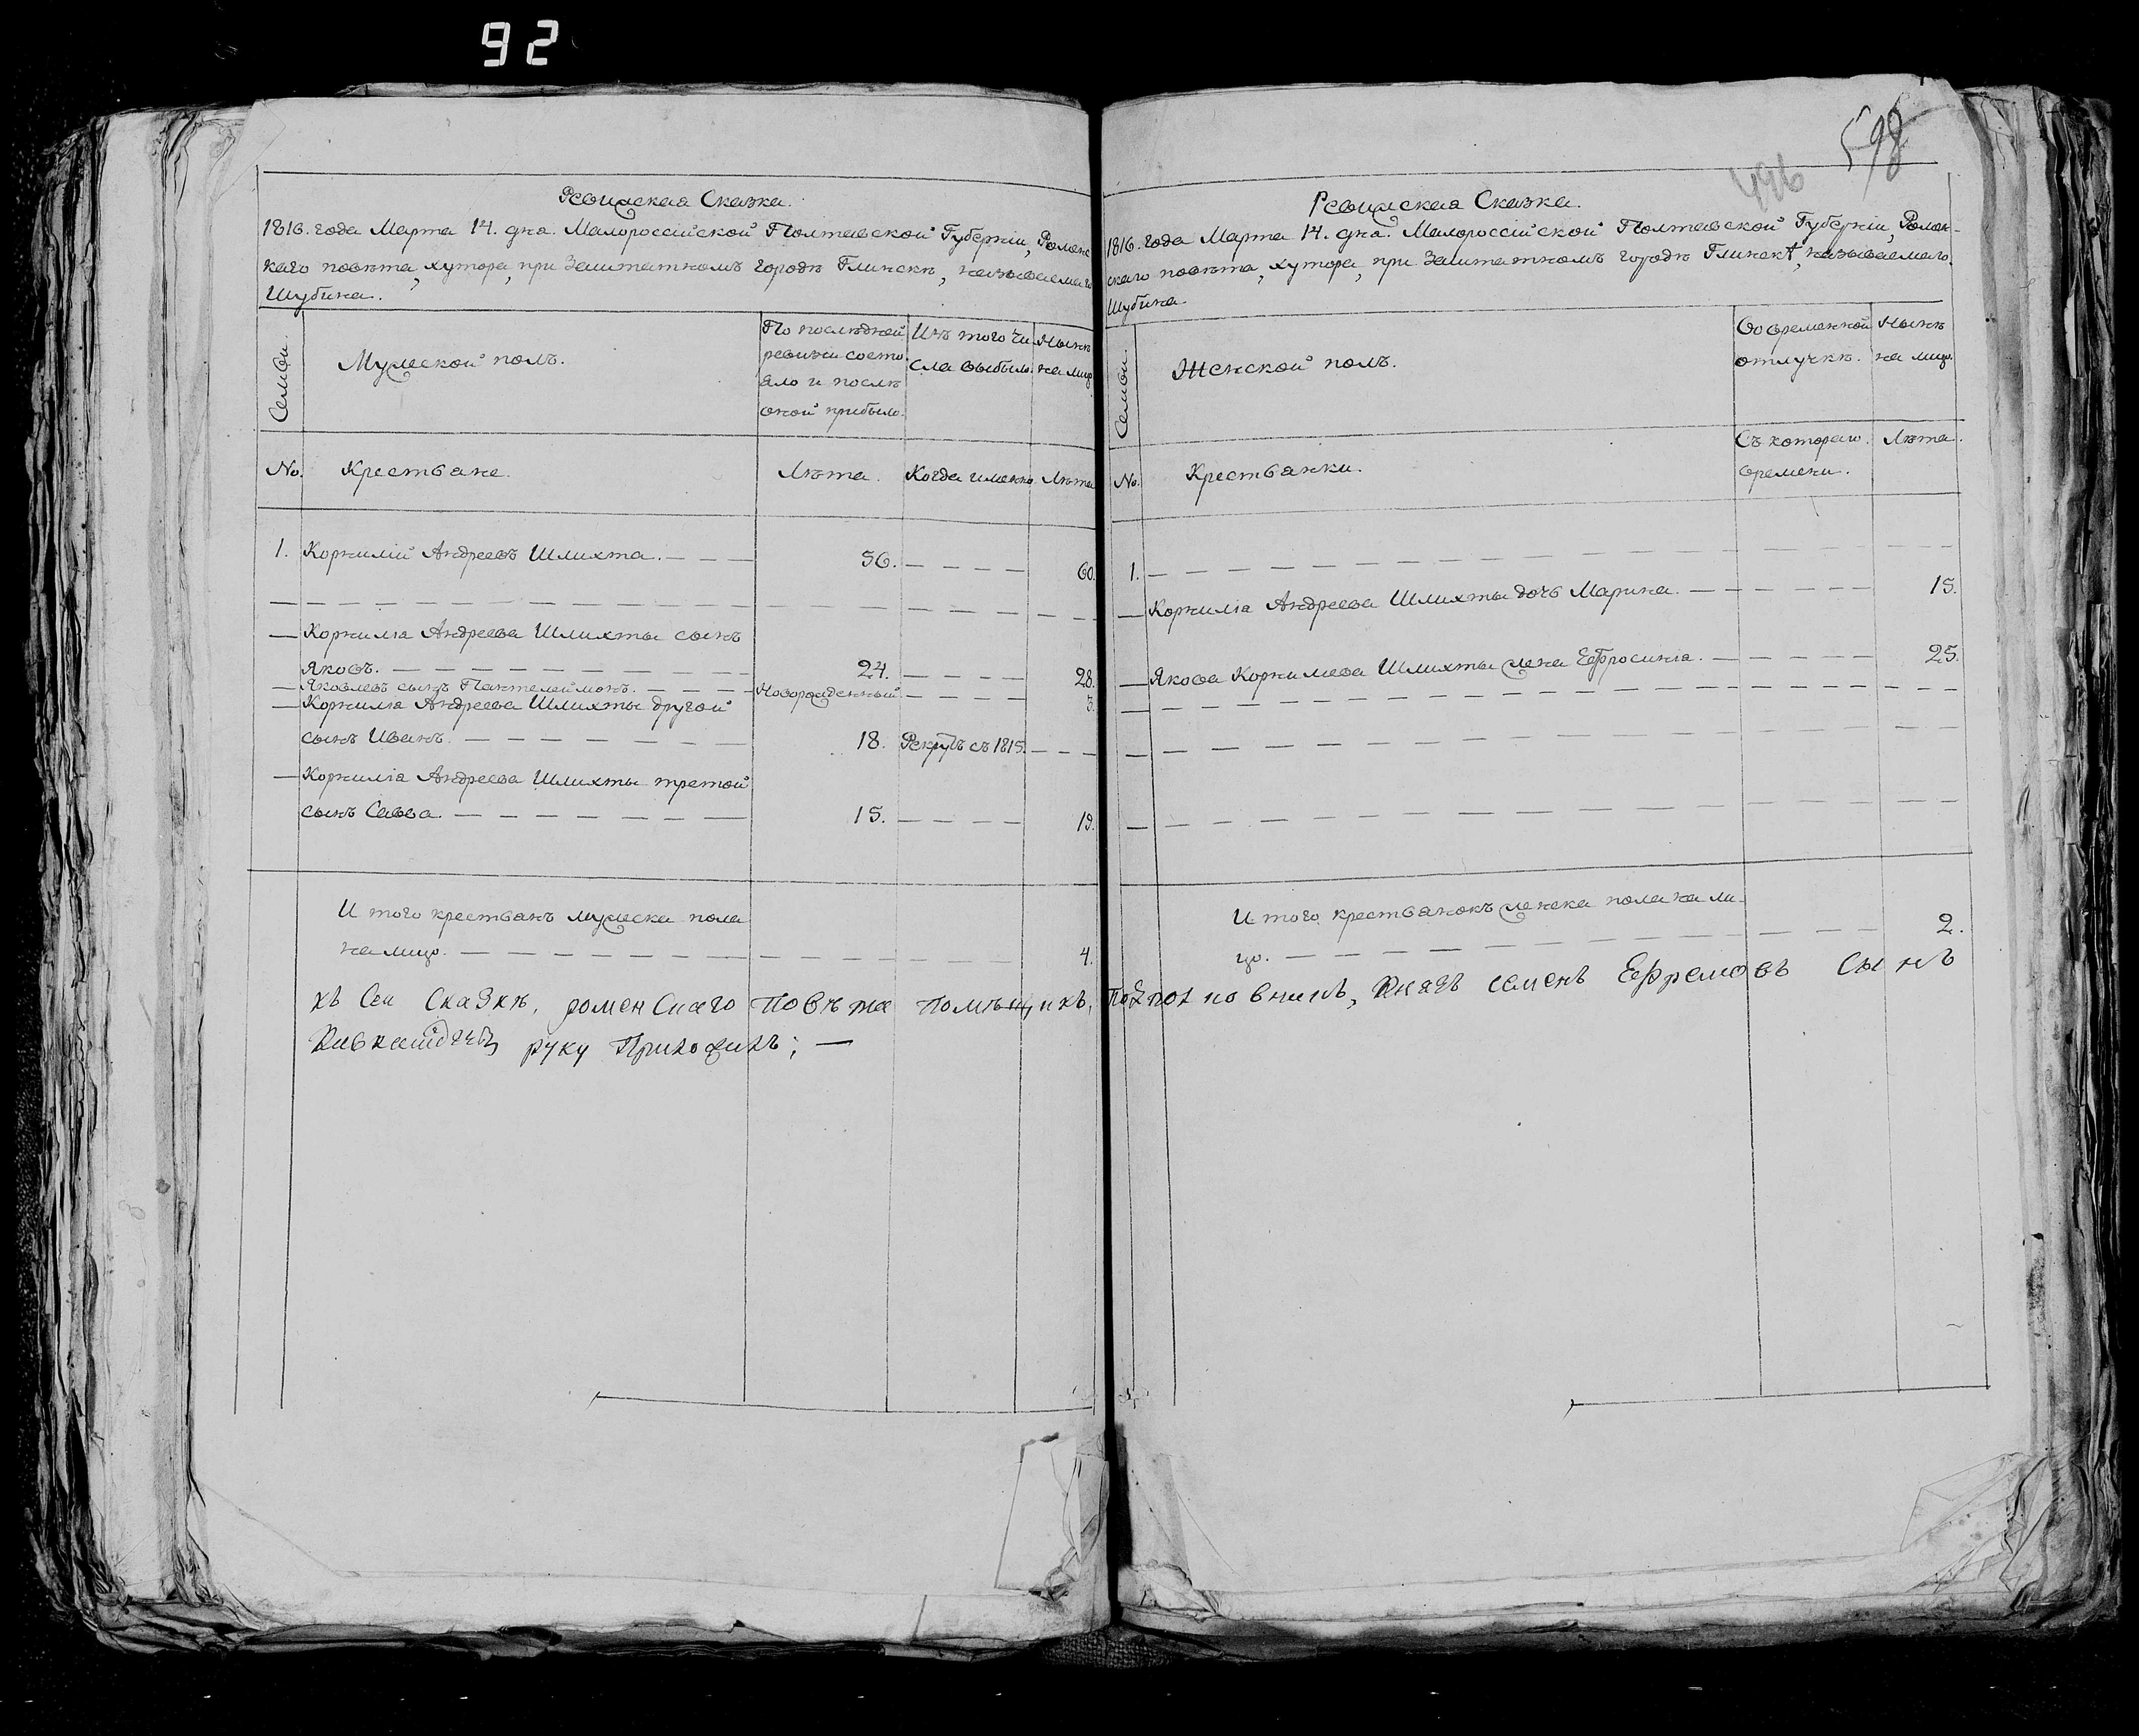 92
598
496
Ревижская Сказка.
1816. года Марта 14. дня. Малороссійской Полтавской Губерніи, Роменс
каго повѣта, хутора, при Заштатномъ городѣ Глинскѣ, называемаго
Шубина.
Семьи.
Мужеской полъ.
По послѣдней
ревизіи состо
яло и послѣ
оной прибыло.
Изъ того чи
сла выбыло.
Нынѣ
на лицо
No. Крестьяне. Лѣта. Когда именно Лѣта
1. Корнилій Андреевъ Шлихта. 56. 60.
Корнилія Андреева Шлихты сынъ
Яковъ. 24. 28.
Яковлевъ сынъ Пантелеймонъ. Новорожденный. 3.
Корнилія Андреева Шлихты другой
сынъ Иванъ. 18. Рекрутъ съ 1815.
Корнилія Андреева Шлихты третой
сынъ Савва. 15. 19.
И того крестьянъ мужеска пола
на лицо. 4.
Ревижская Сказка.
1816. года Марта 14. дня. Малороссійской Полтавской Губерніи, Ромен-
скаго повѣта, хутора, при Заштатномъ городѣ Глинскѣ, называемаго.
Шубина.
Семьи.
Женской полъ.
Во временной
отлучкѣ.
Нынѣ
на лицо.
No. Крестьянки. Съ котораго. Лѣта.
времени.
1.
Корнилія Андреева Шлихты дочь Марина. 15.
Якова Корнилева Шлихты жена Ефросинія. 25.
И того крестьянокъ женска пола на ли-
цо. 2.
къ Сеи Сказкѣ, роменскаго повѣта помѣщикъ, подполковникъ, Князь семенъ Ефремовъ сынъ
руку Приложилъ; —